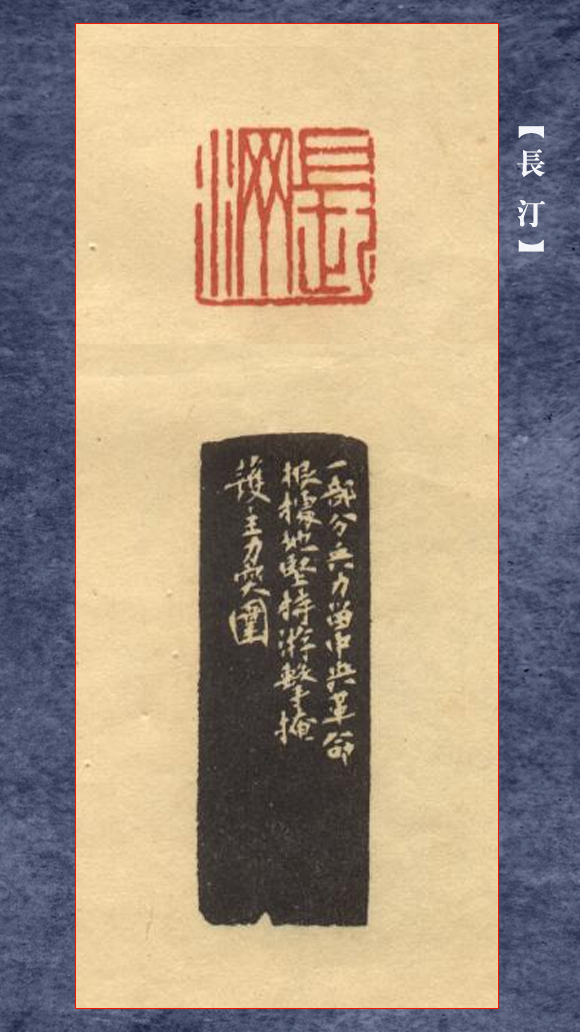 【長汀】
長汀
一部分兵力留中央革命
根據地堅持游擊掩
護主力突圍